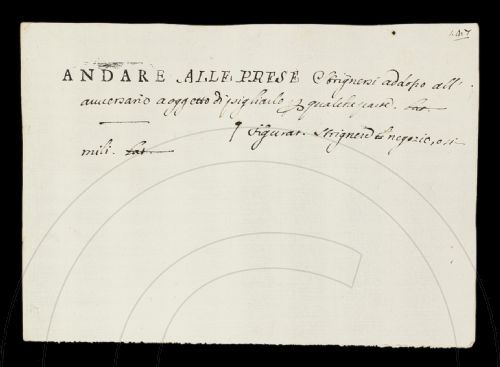 447
ANDARE ALLE PRESE Strignersi addosso all'
avversario a oggetto di pigliarlo p qualche parte. Lat.
¶ Figurat. Strignere il negozio, o si-
mili. Lat.